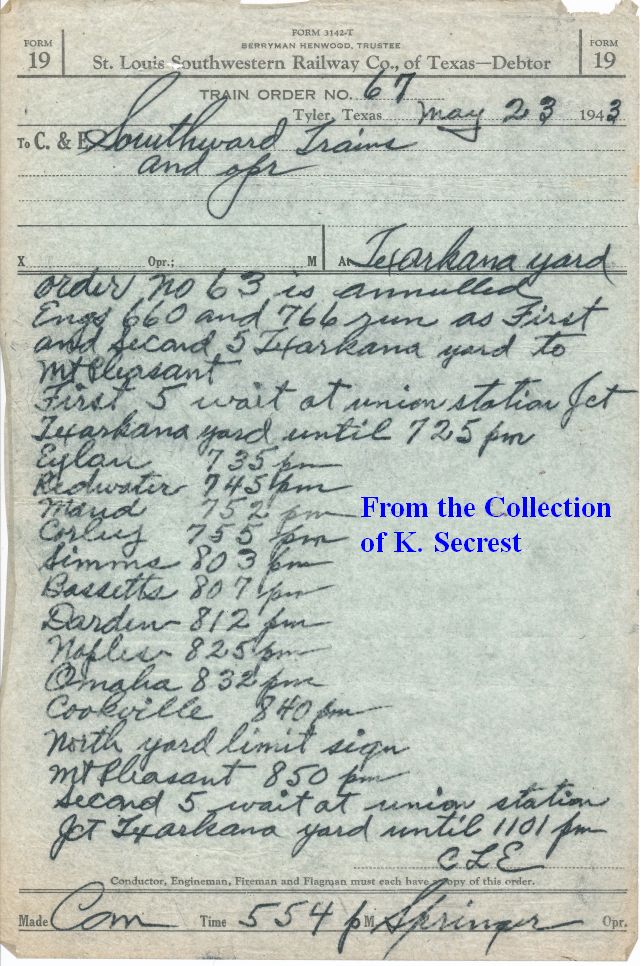 FORM 3142-T
FORM 19
BERRYMAN HENWOOD, TRUSTEE
FORM 19
St. Louis Southwestern Railway Co., of Texas—Debtor
TRAIN ORDER NO. 67
Tyler, Texas May 23 1943
To C. & E. Southward Trains
and opr
X Opr.; M At Texarkana yard
order no 63 is annulled
Engs 660 and 766 run as First
and Second 5 Texarkana yard to
Mt Pleasant
First 5 wait at union station Jct
Texarkana yard until 725 pm
Eylau 735 pm
Redwater 745 pm
Maud 752 pm
Corley 755 pm
Simms 803 pm
Bassetts 807 pm
Darden 812 pm
Naples 825 pm
Omaha 832 pm
Cookville 840 pm
North yard limit sign
Mt Pleasant 850 pm
Second 5 wait at union station
Jct Texarkana yard until 1101 pm
CLE
Conductor, Engineman, Fireman and Flagman must each have a copy of this order.
Made Com Time 554 p M Springer Opr.
From the Collection
of K. Secrest